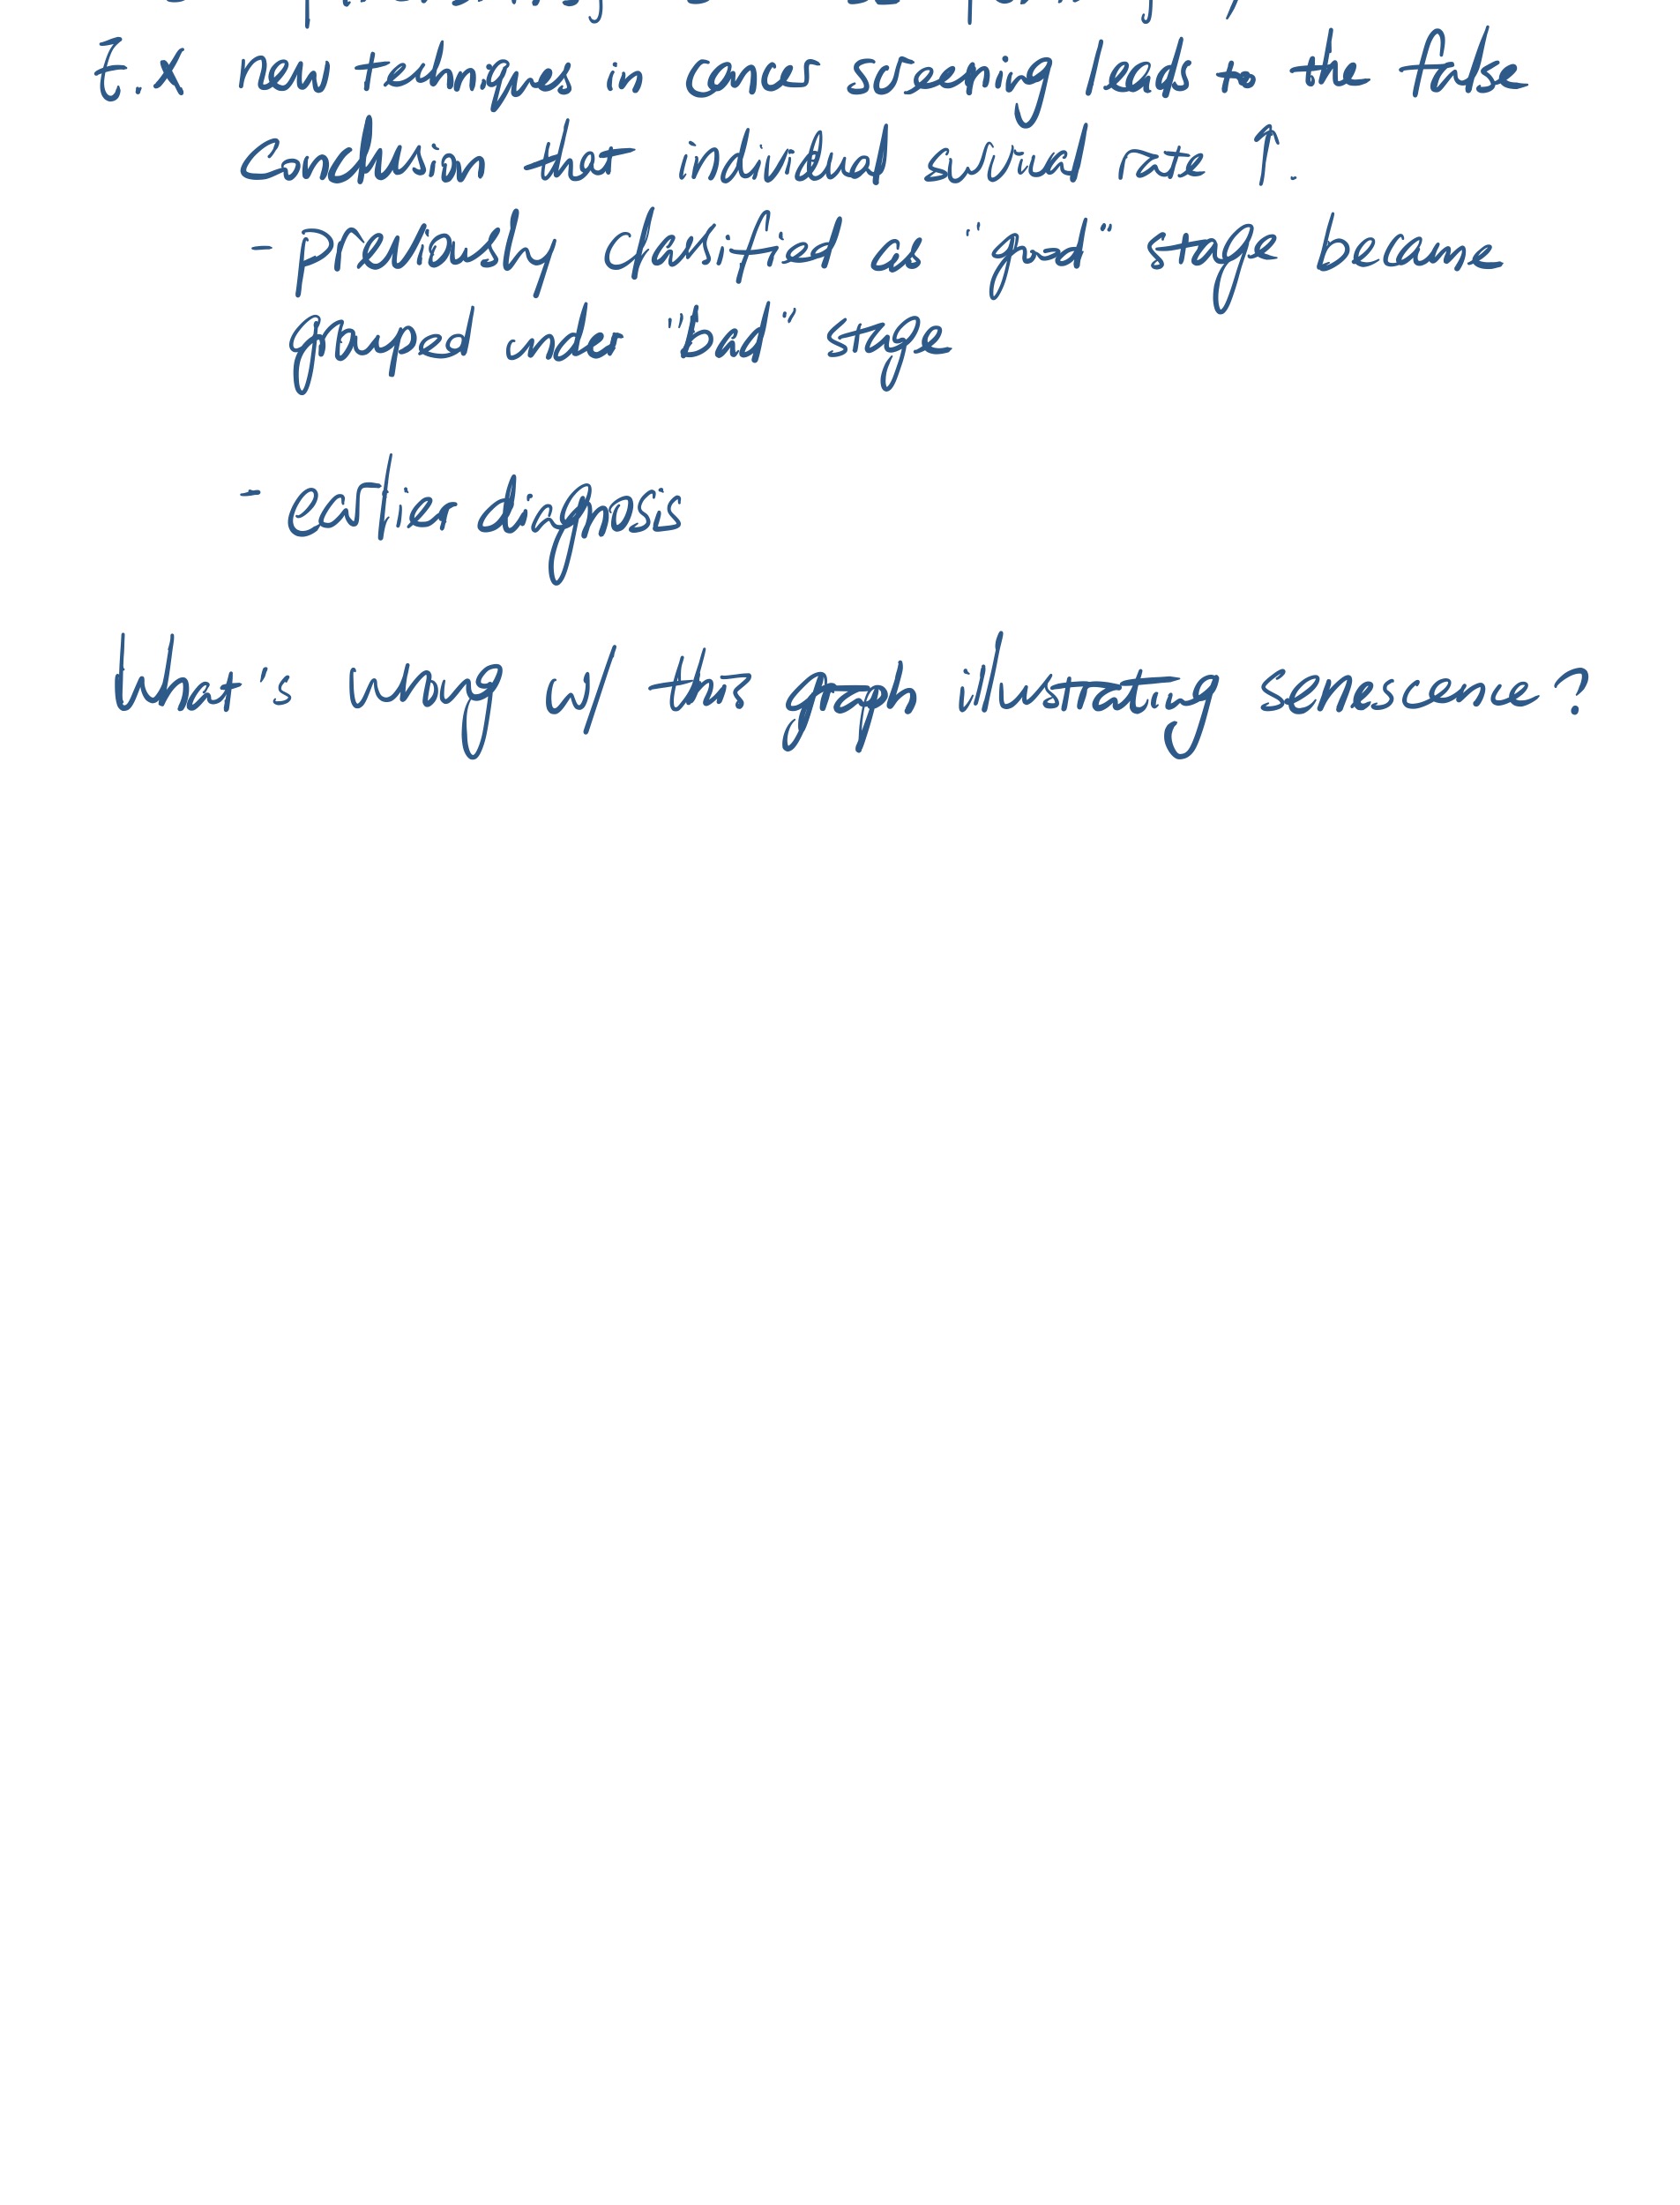 E.x new techniques in cancer screening leads to the false
conclusion that individual survival rate ↑.
- previously classified as "good" stage became
grouped under "bad" stage
- earlier diagnosis
What's wrong w/ this graph illustrating senescence?